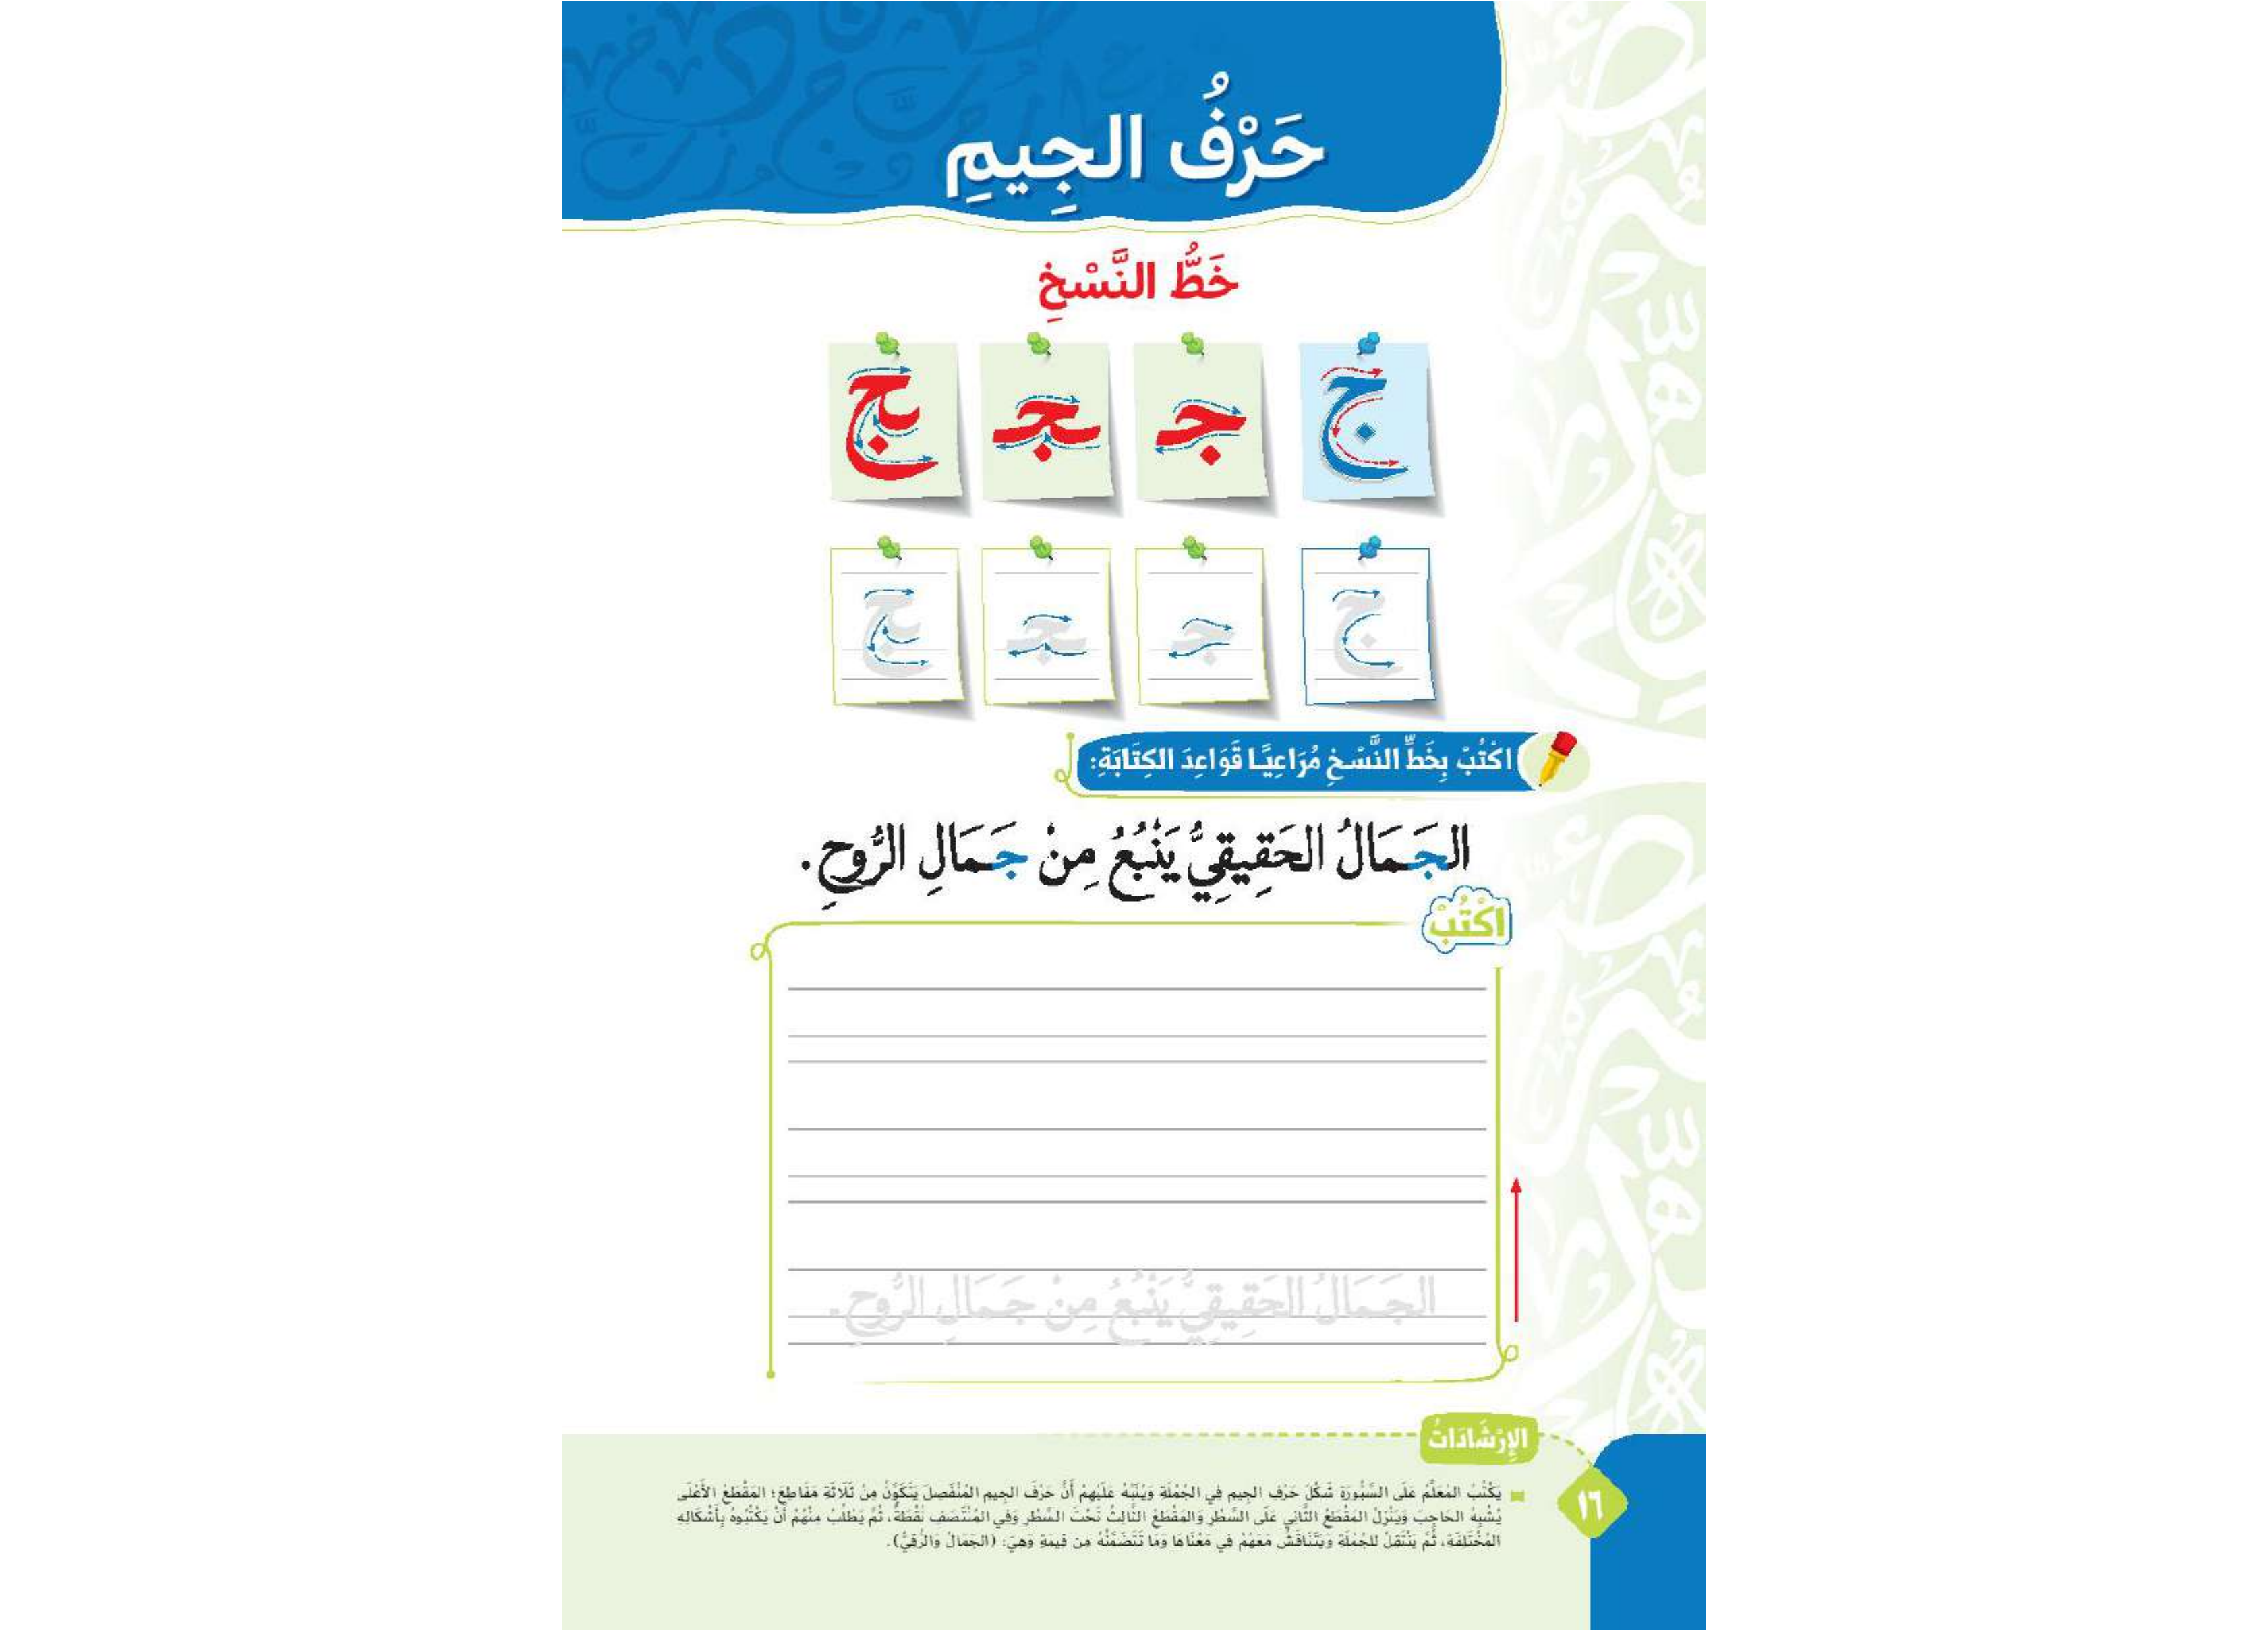 حَرْفُ الجِيمِ
خَطُّ النَّسْخِ
ج جـ ـجـ ـج
ج جـ ـجـ ـج
اكْتُبْ بِخَطِّ النَّسْخِ مُرَاعِيًا قَوَاعِدَ الكِتَابَةِ:
الجَمَالُ الحَقِيقِيُّ يَنْبُعُ مِنْ جَمَالِ الرُّوحِ.
اكْتُبْ
الجَمَالُ الحَقِيقِيُّ يَنْبُعُ مِنْ جَمَالِ الرُّوحِ.
الإِرْشَادَاتُ
يَكْتُبُ المُعَلِّمُ عَلَى السَّبُّورَةِ شَكْلَ حَرْفِ الجِيمِ فِي الجُمْلَةِ وَيُنَبِّهُ عَلَيْهِمْ أَنَّ حَرْفَ الجِيمِ المُنْفَصِلَ يَتَكَوَّنُ مِنْ ثَلَاثَةِ مَقَاطِعَ؛ المَقْطَعُ الأَعْلَى
يُشْبِهُ الحَاجِبَ وَيَنْزِلُ المَقْطَعُ الثَّانِي عَلَى السَّطْرِ وَالمَقْطَعُ الثَّالِثُ تَحْتَ السَّطْرِ وَفِي المُنْتَصَفِ نُقْطَةٌ، ثُمَّ يَطْلُبُ مِنْهُمْ أَنْ يَكْتُبُوهُ بِأَشْكَالِهِ
المُخْتَلِفَةِ، ثُمَّ يَنْتَقِلُ لِلجُمْلَةِ وَيَتَنَاقَشُ مَعَهُمْ فِي مَعْنَاهَا وَمَا تَتَضَمَّنُهُ مِن قِيمَةٍ وَهِيَ: (الجَمَالُ وَالرُّقِيُّ).
١٦